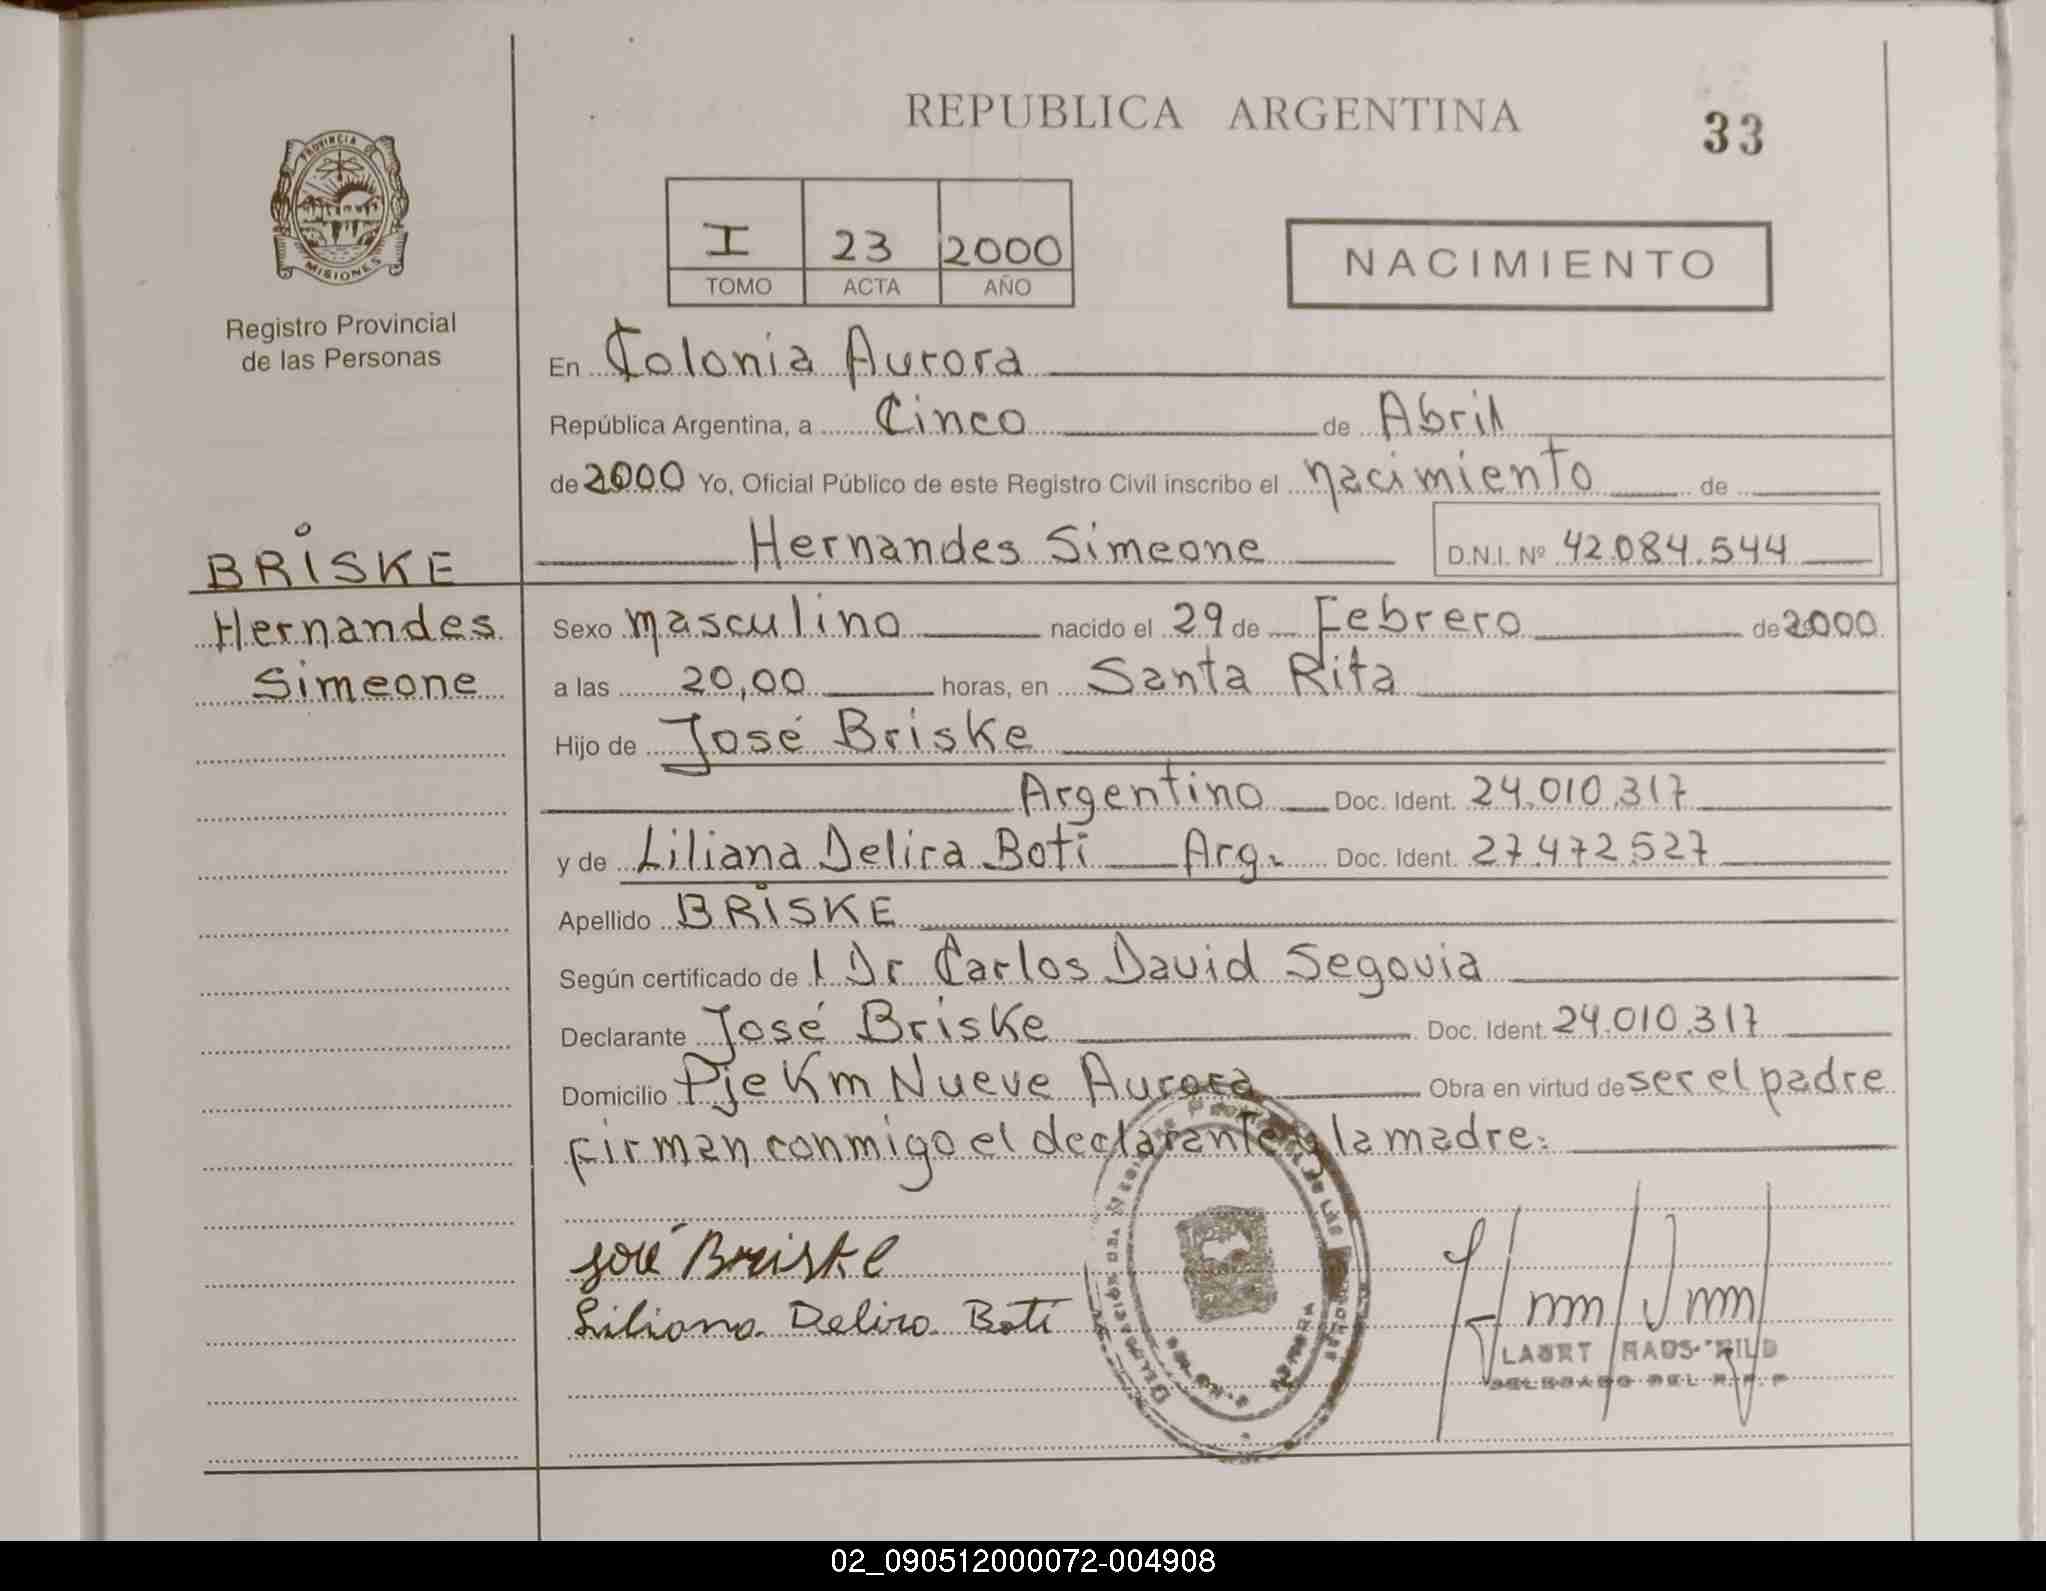 REPUBLICA ARGENTINA
33
PROVINCIA DE
MISIONES
Registro Provincial
de las Personas
I 23 2000
TOMO ACTA AÑO
NACIMIENTO
En Colonia Aurora
República Argentina, a Cinco de Abril
de 2000 Yo, Oficial Público de este Registro Civil inscribo el nacimiento de
Hernandes Simeone D.N.I. Nº 42.084.544
BRISKE
Hernandes
Simeone
Sexo masculino nacido el 29 de Febrero de 2000
a las 20,00 horas, en Santa Rita
Hijo de José Briske
Argentino Doc. Ident. 24.010.317
y de Liliana Delira Boti Arg. Doc. Ident. 27.472.527
Apellido BRISKE
Según certificado de l Dr Carlos David Segovia
Declarante José Briske Doc. Ident. 24.010.317
Domicilio Pje Km Nueve Aurora Obra en virtud de ser el padre
firman conmigo el declarante y la madre.
José Briske
Liliana Delira Boti
DELEGADO DEL R.P.P
02_090512000072-004908